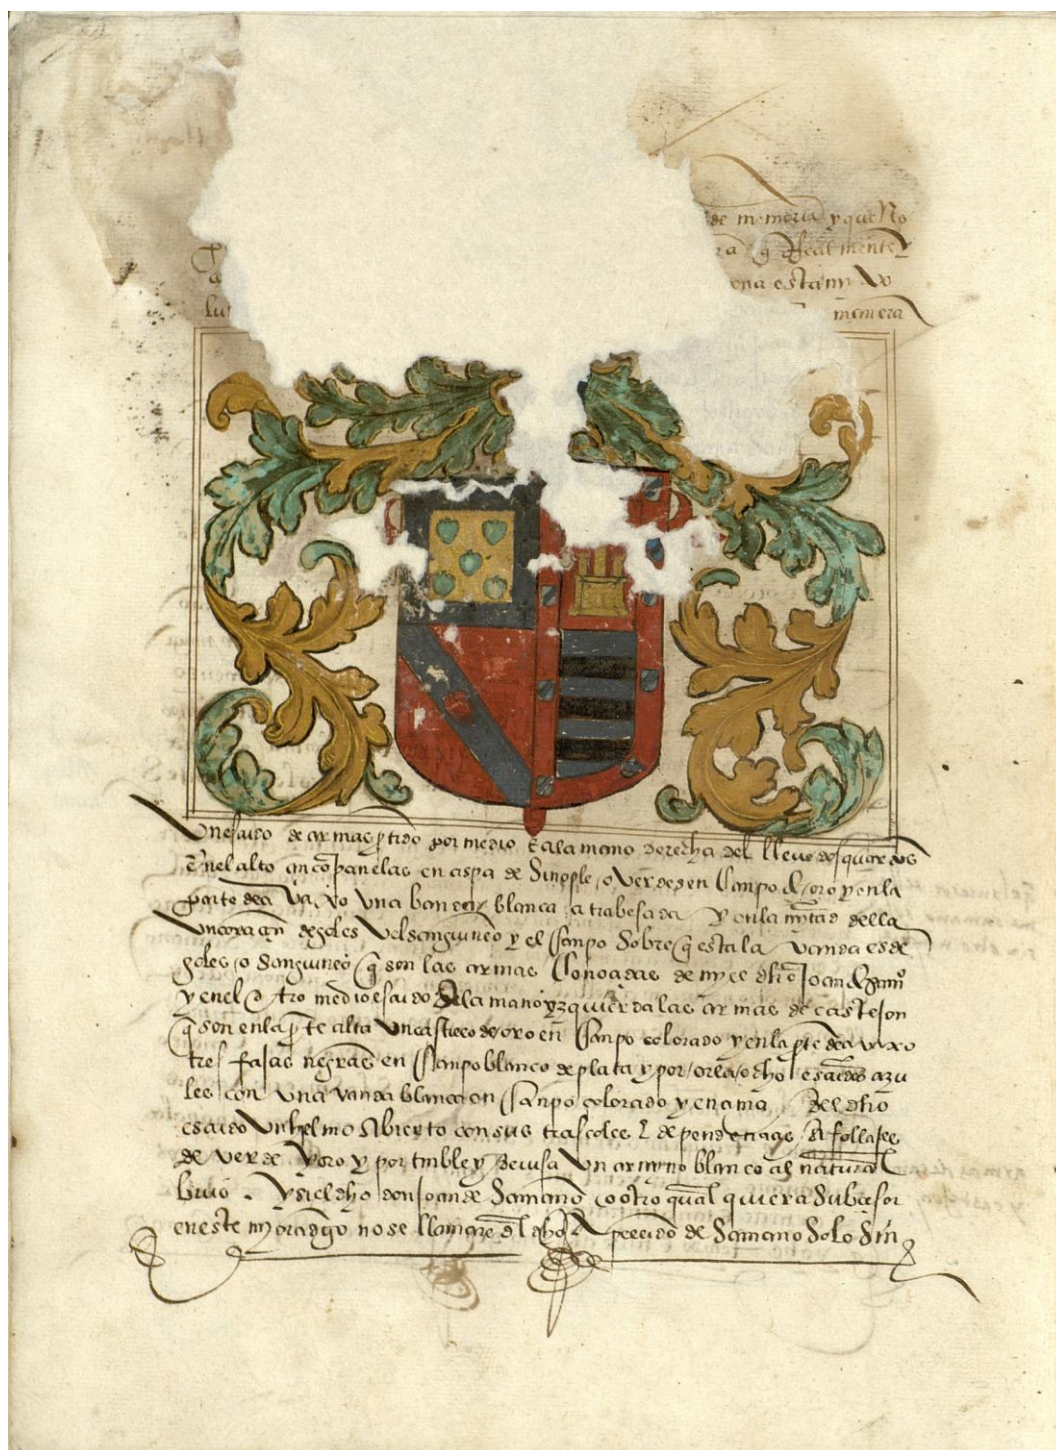 de memoria y que No
ra q Realmente y
ena esta mi vo
lu manera
Un escudo de armas ptido por medio e a la mano derecha del lleve dos quarteles
En el alto cinco panelas en aspa de Sinople, o verdes en Campo de oro y en la
parte de a Vaxo una banda blanca atrabesada y en la mytad della
Un coraçon de goles Vel sanguineo y el Campo sobre q esta la vanda es de
goles, o Sanguineo q son las armas de my el dho Joan de Samo
y en el otro medio escudo A la mano yzquierda las armas de castejon
q son en la pte alta un castillo de oro en Campo colorado y en la pte de a vaxo
tres fajas negras en Campo blanco de plata y por orla ocho escudos azu
les con una vanda blanca en Campo colorado y encima del dho
escudo Un helmo Abierto con sus trascoles de follajes
de verde y oro y por timble y devisa Un armyno blanco al natural
bivo. Y si el dho don Joan de Samano, o otro qual quiera subcesor
en este mayoradgo no se llamare del dho Apellido de Samano Solo Sin